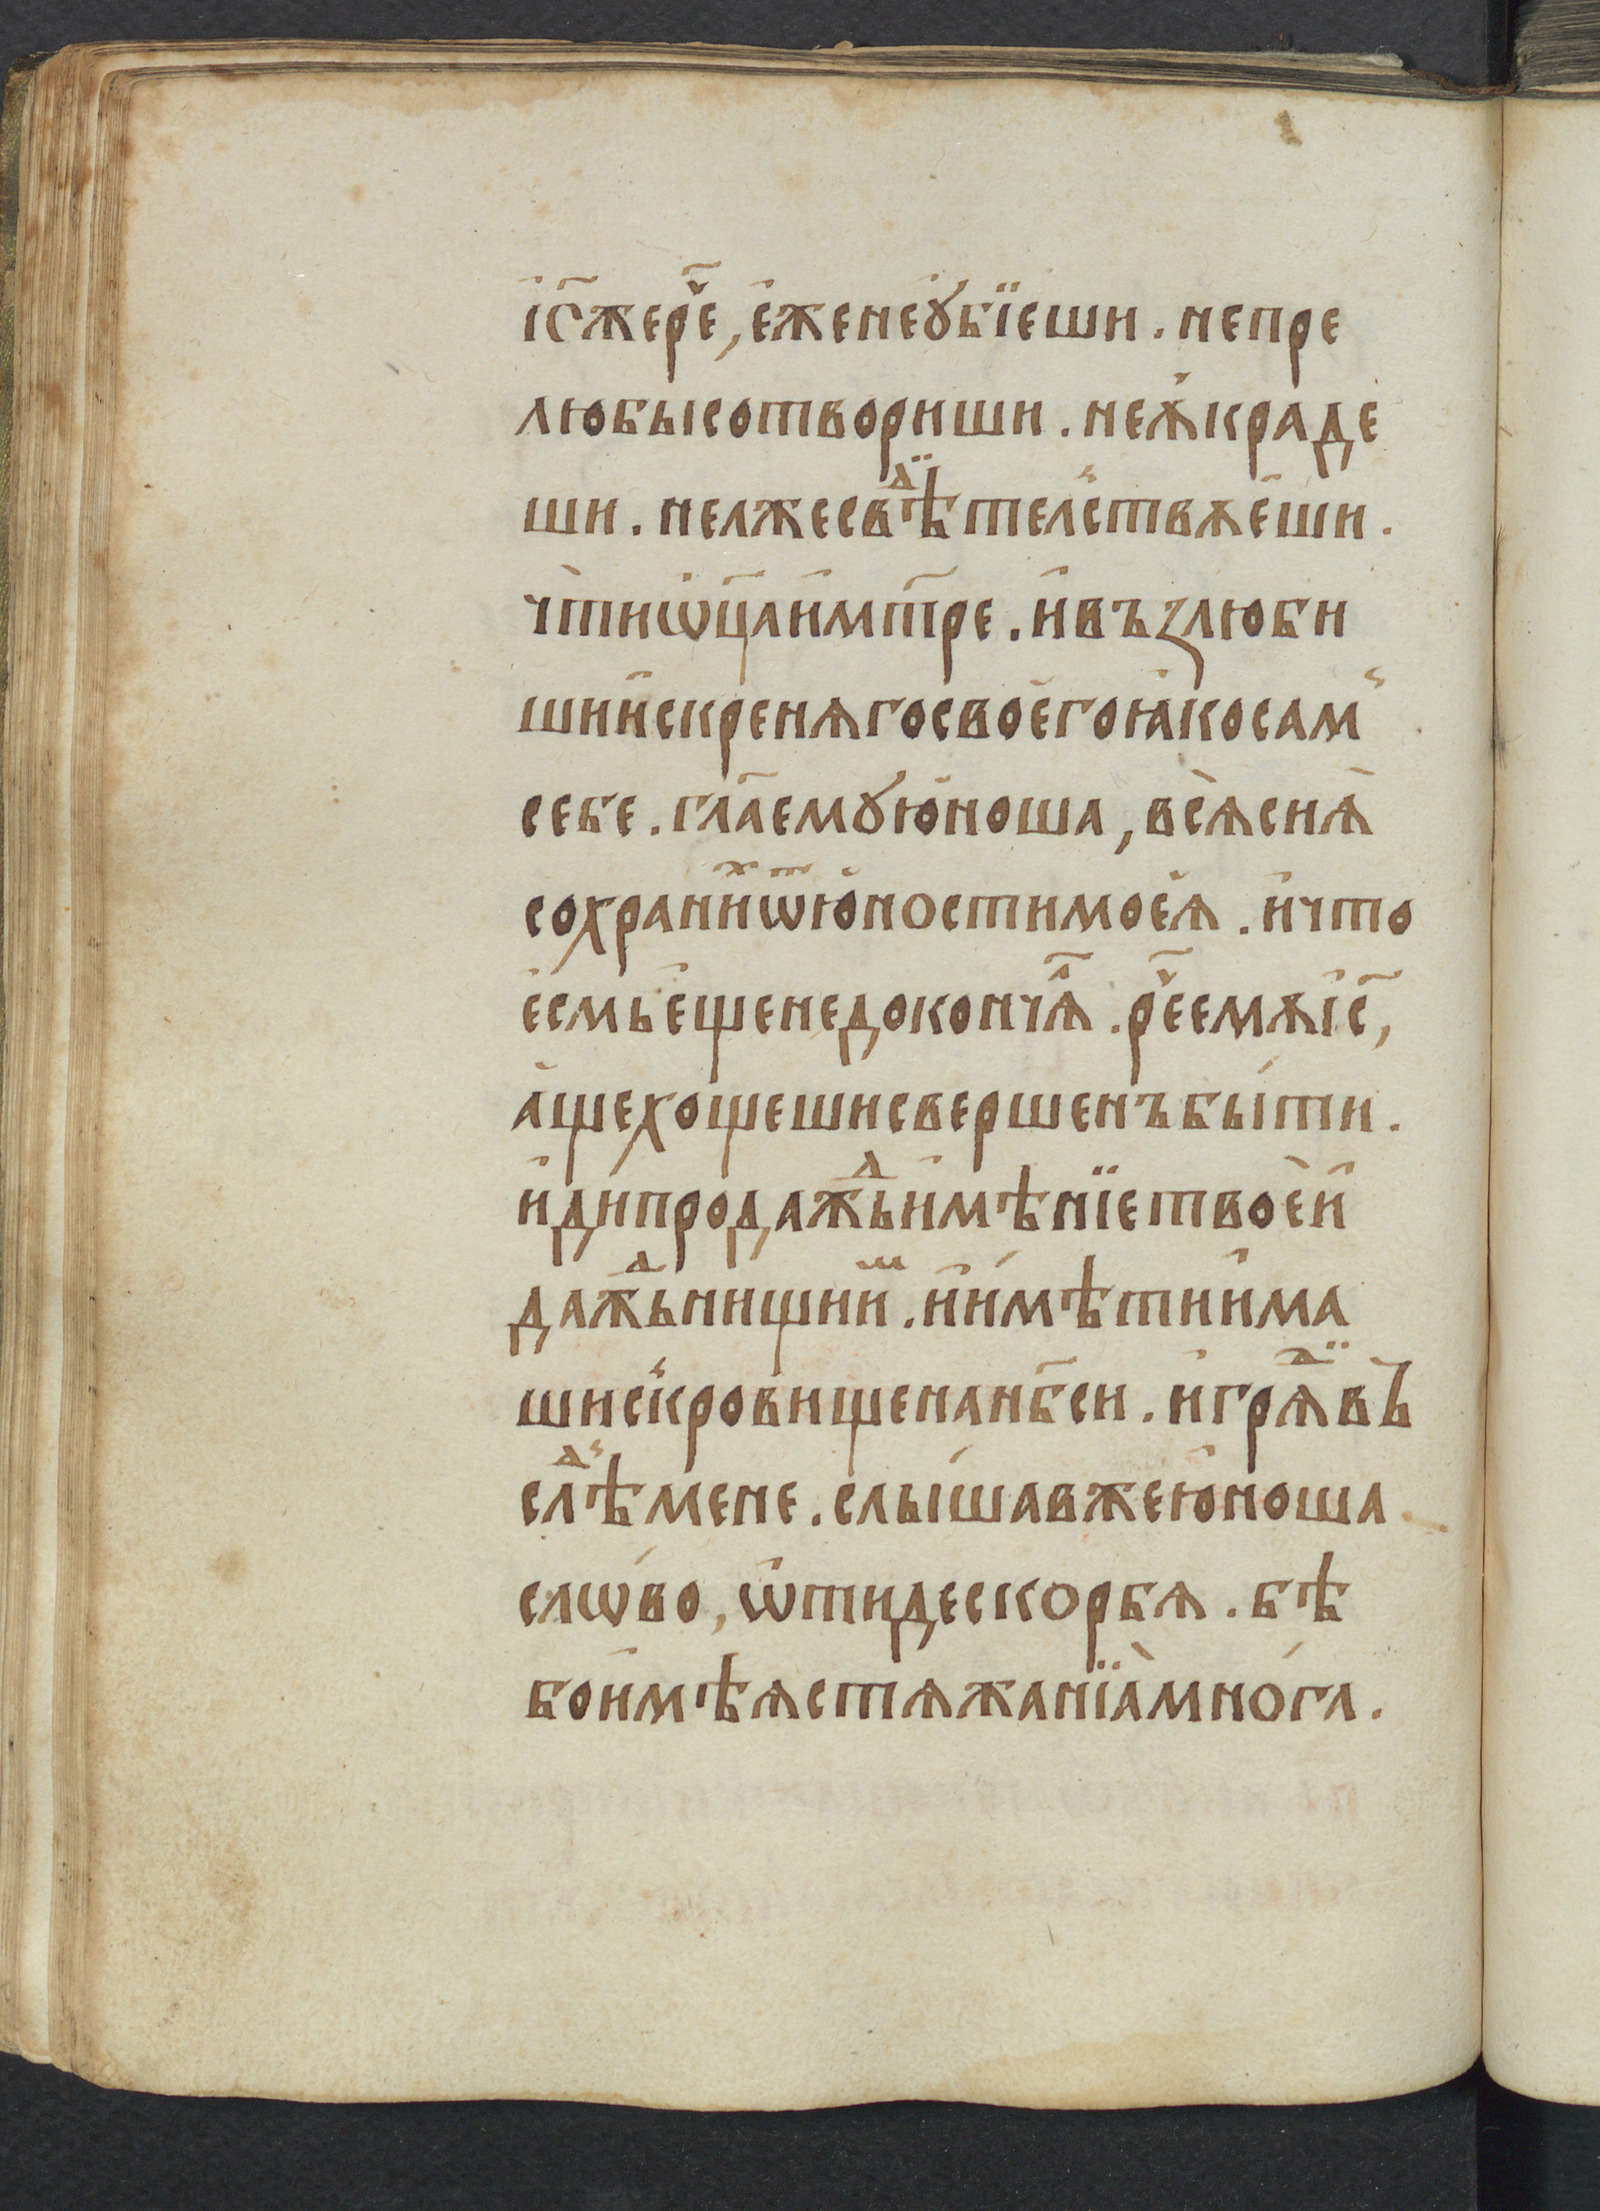 і҆с҃жере҃ч, є҆женеꙋ҆бїеши. непре
любысотвориши. неѫ҆краде
ши. нелжесвѣⷣтел҆ствѫе҆ши.
чтѝѡ҆ц҃аи҆мт҃ре. и҆въꙁлюби
шии҆скренѧгосвое҆гоꙗ҆косам̾
себе. гл҃аемꙋю҆ноша, всѧ̀сиѧ̀
сохраниⷯѿю҆ностимоеѧ̀. и҆что
є҆смье҆щенедокончаⷧ҇. реⷱ҇емѫі҆с҃,
а҆щехощешисвершенъбы́ти.
и҆дии҆продажⷣьи҆мѣнїетвоѐи҆
дажⷣьнищииⷨ. и҆и҆мѣтии҆ма
шиск̾ровищенанб҃си. и҆грѧⷣивъ
слѣⷣмене. слы́шавжею҆ноша
слѡ́во, ѡ҆тидескорбѧ. бѣ
бои҆мѣѧстѧжанїа҆мно́га.